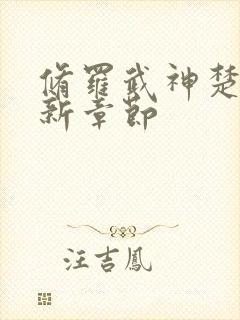 脩羅武神楚
新章節
汪吉鳳